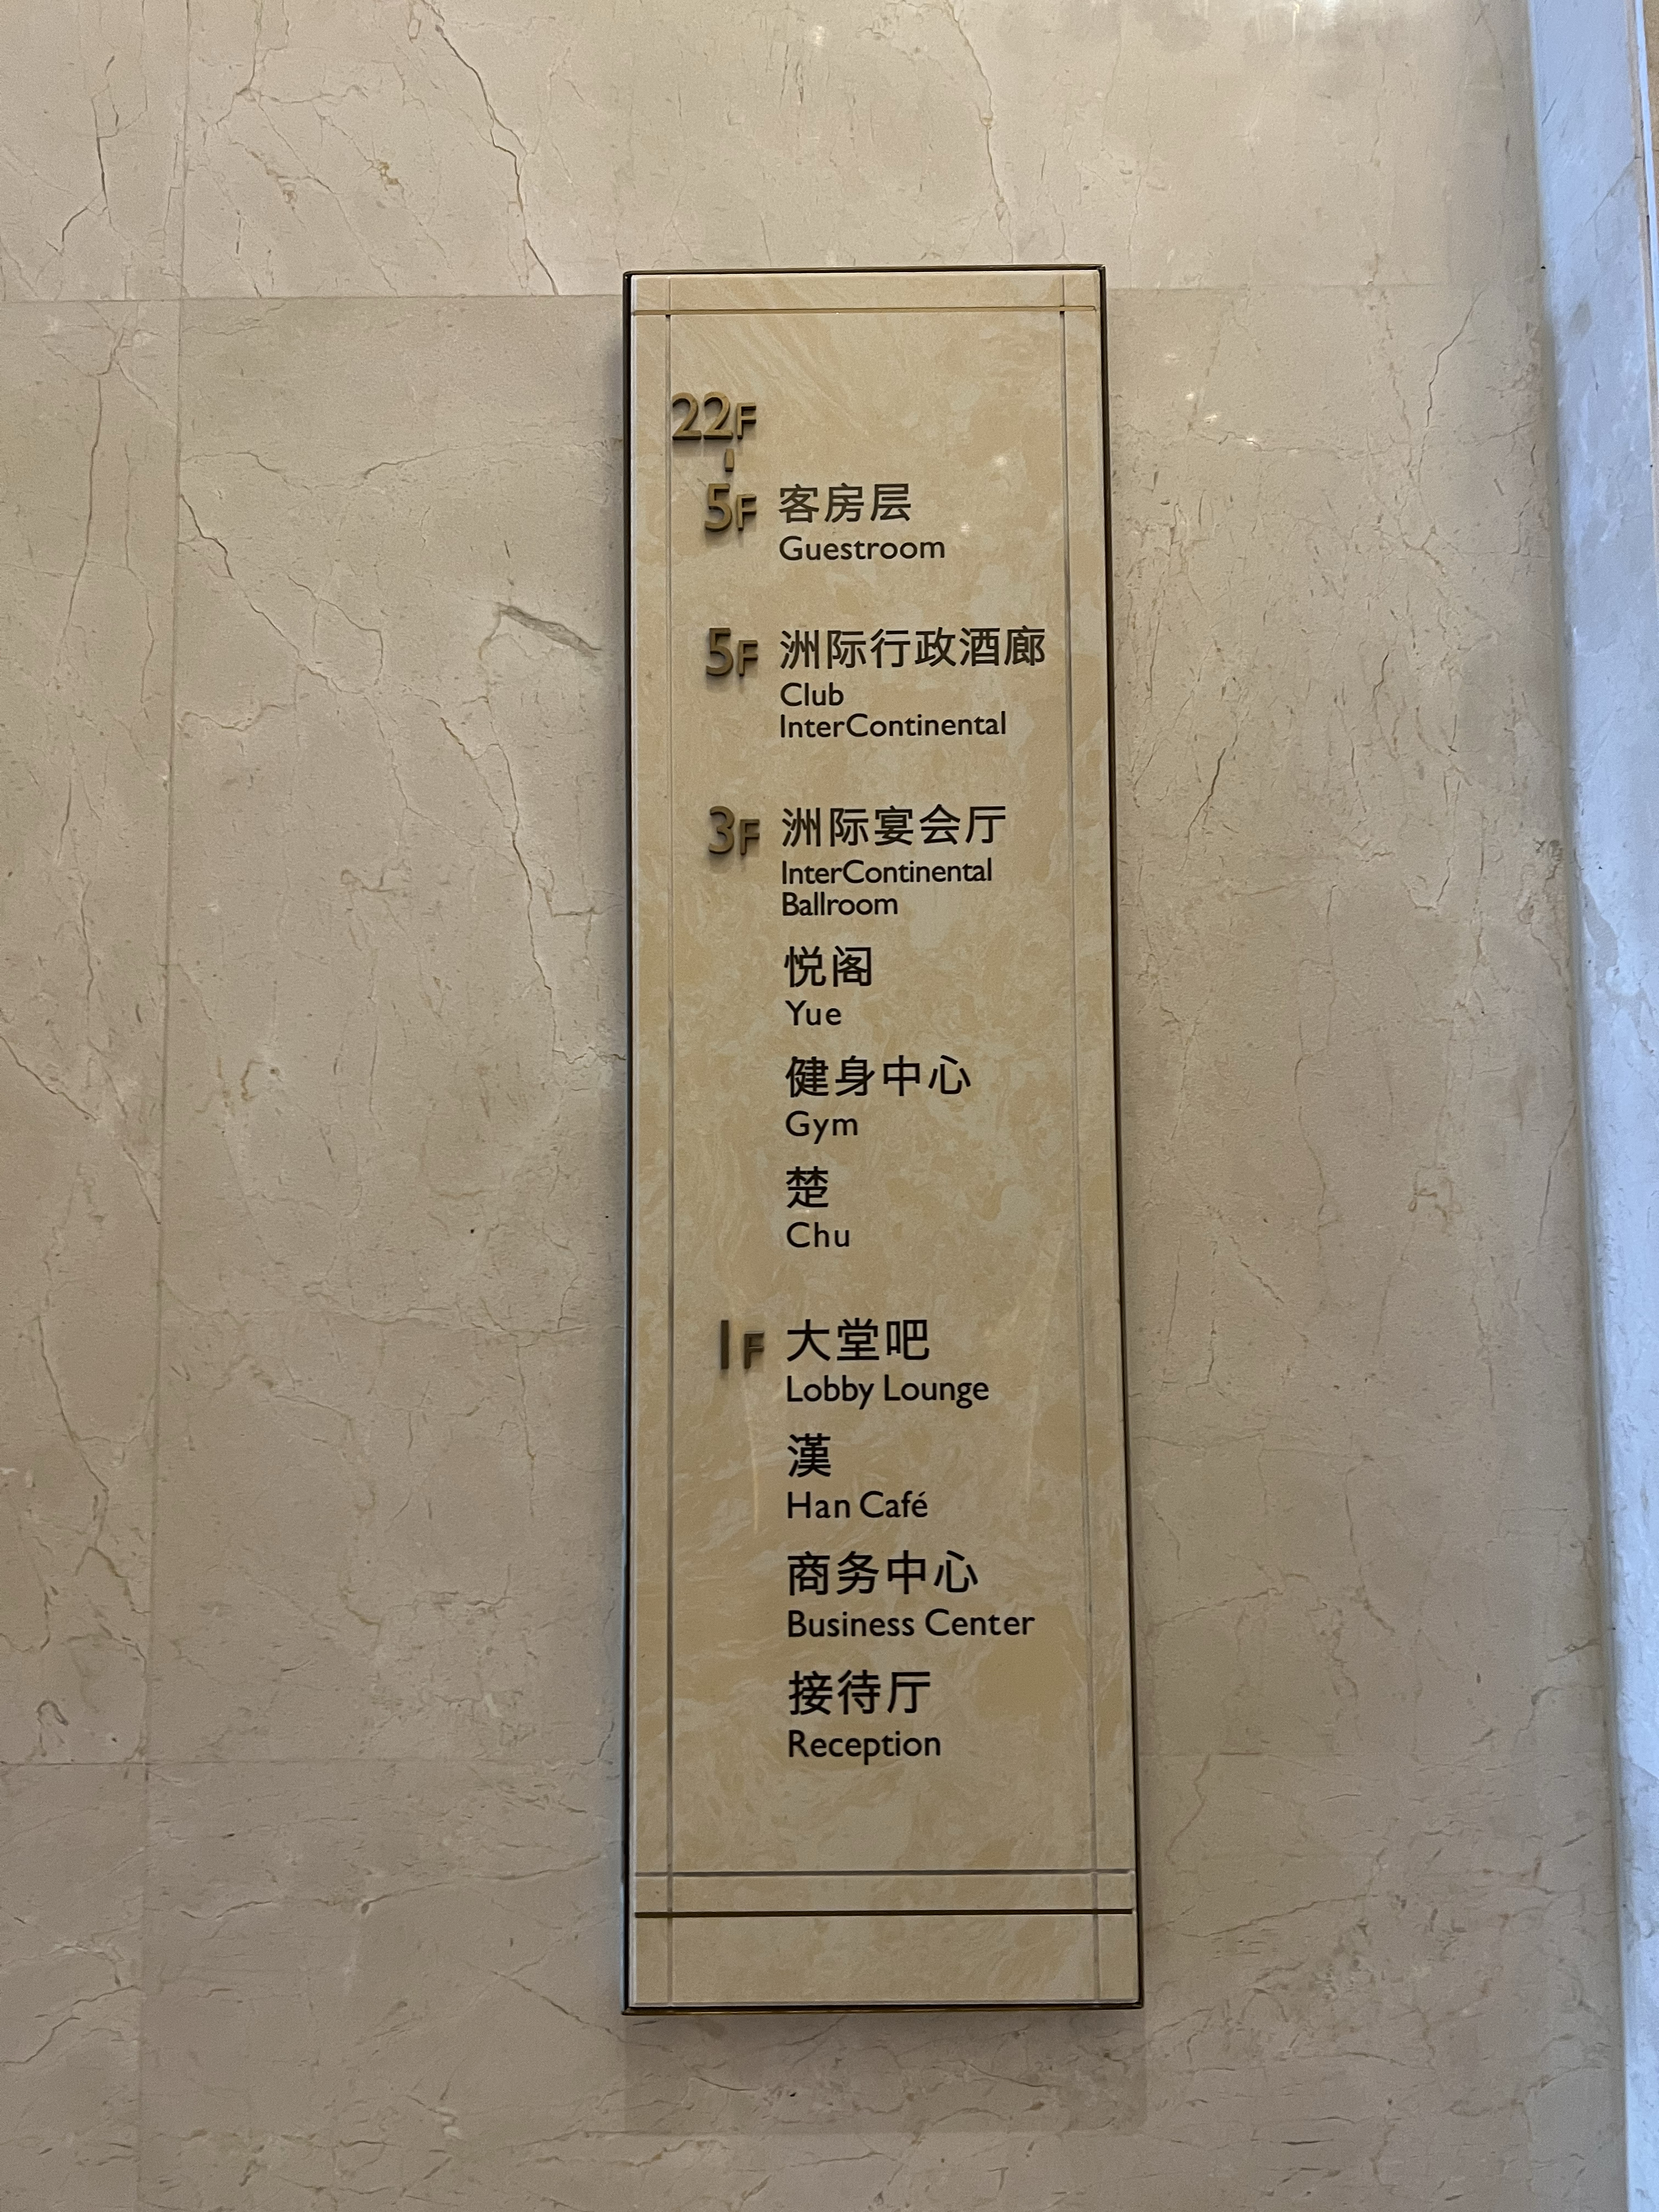 22F
-
5F 客房层
Guestroom
5F 洲际行政酒廊
Club
InterContinental
3F 洲际宴会厅
InterContinental
Ballroom
悦阁
Yue
健身中心
Gym
楚
Chu
1F 大堂吧
Lobby Lounge
漢
Han Café
商务中心
Business Center
接待厅
Reception